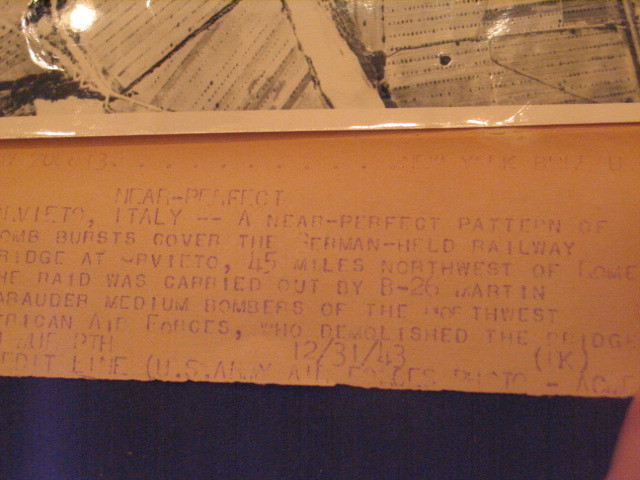 NEW YORK BUREAU
NEAR-PERFECT
ORVIETO, ITALY -- A NEAR-PERFECT PATTERN OF
OMB BURSTS COVER THE GERMAN-HELD RAILWAY
RIDGE AT ORVIETO, 45 MILES NORTHWEST OF ROME.
HE RAID WAS CARRIED OUT BY B-26 MARTIN
ARAUDER MEDIUM BOMBERS OF THE NORTHWEST
ERICAN AIR FORCES, WHO DEMOLISHED THE BRIDGE
12/31/43 (IK)
EDIT LINE (U.S. ARMY AIR FORCES PHOTO - ACME